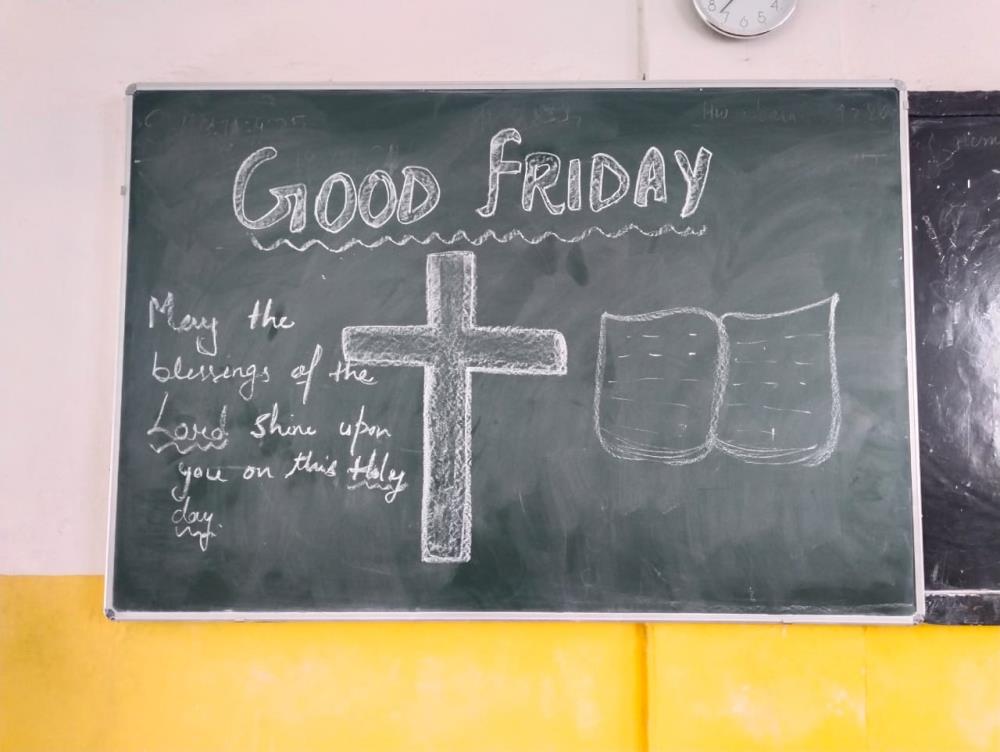 GOOD FRIDAY
May the
blessings of the
Lord shine upon
you on this Holy
day.
8 7 6 5 4